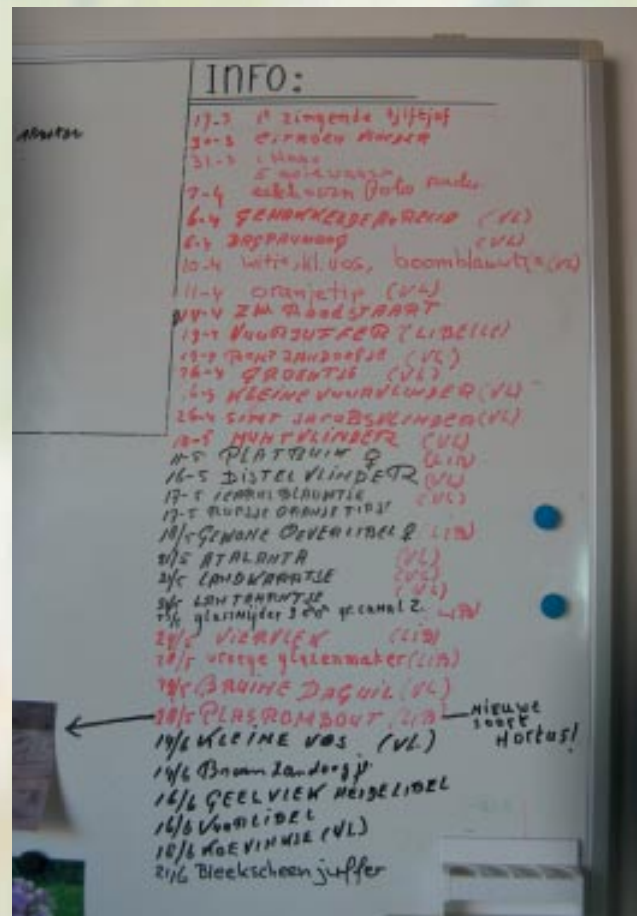 INFO:
17-3 1e zingende tjiftjaf
30-3 CITROEN VLINDER
31-3
7-4 eekhoorn
6-4 GEHAKKELDE AURELIA (VL)
6-4 DAGPAUWOOG (VL)
10-4 witje, kl. vos, boomblauwtje (VL)
11-4 oranjetip (VL)
ZW. ROODSTAART
VUURJUFFER (LIBELLE)
BONT ZANDOOGJE (VL)
26-4 GROENTJE (VL)
KLEINE VUURVLINDER (VL)
26-4 SINT JACOBSVLINDER (VL)
MUNTVLINDER (VL)
11-5 PLATBUIK ♀ (LIB)
16-5 DISTELVLINDER (VL)
17-5 ICARUSBLAUWTJE (VL)
17-5 ORANJETIPS!
18/5 GEWONE OEVERLIBEL ♀ LIB
21/5 ATALANTA (VL)
LANDKAARTJE (VL)
LANTAARNTJE (VL)
glassnijder LIB
VIERVLEK (LIB)
28/5 vroege glazenmaker (LIB)
BRUINE DAGUIL (VL)
28/5 PLASROMBOUT (LIB) — NIEUWE SOORT HORTUS!
14/6 KLEINE VOS (VL)
14/6 Bruin Zandoogje
16/6 GEELVLEK HEIDELIBEL
16/6 VUURLIBEL
18/6 KOEVINKJE (VL)
21/6 Bleekscheenjuffer